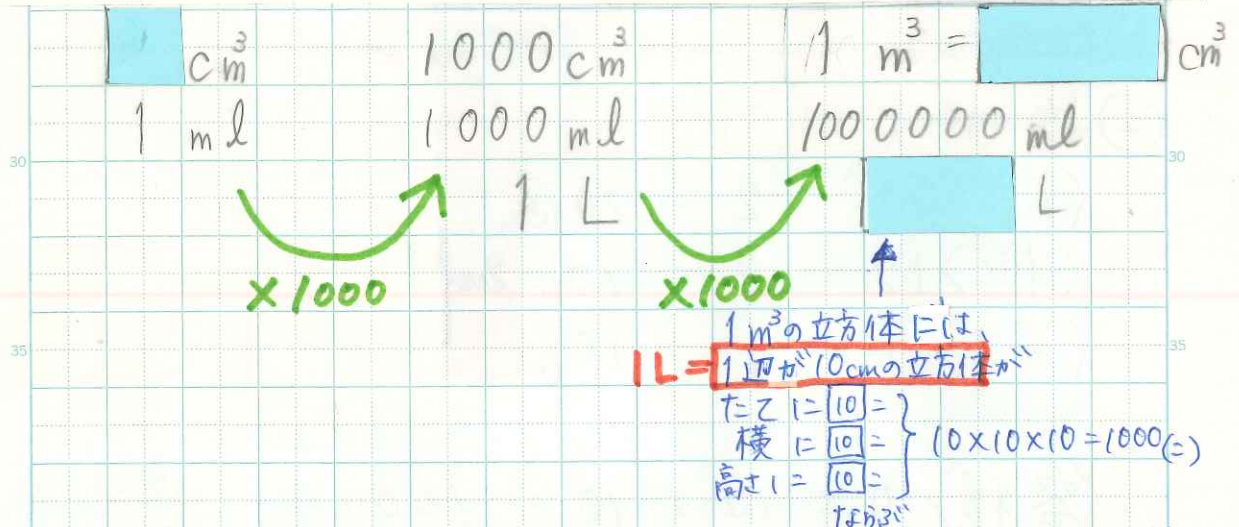 cm³ 1000cm³ 1 m³ = cm³
1 ml 1000 ml 1000000 ml
30 30
1 L L
×1000 ×1000
1m³の立方体には、
35 35
1L=1辺が10cmの立方体が
たてに10こ
横に10こ 10×10×10=1000(こ)
高さに10こ
ならぶ